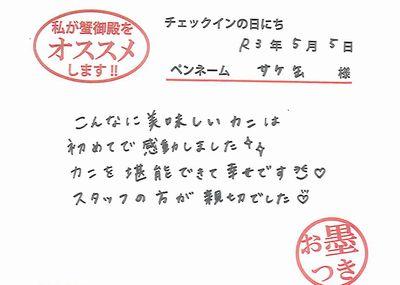 私が蟹御殿を
オススメ
します!!
チェックインの日にち
R3年5月5日
ペンネーム サケ缶 様
こんなに美味しいカニは
初めてで感動しました
カニを堪能できて幸せです♡
スタッフの方が親切でした
お墨
つき